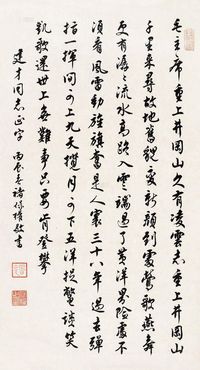 毛主席重上井岡山久有凌雲志重上井岡山
千里来尋故地舊貌變新顔到處鶯歌燕舞
更有潺潺流水高路入雲端過了黄洋界險處不
須看風雷動旌旗奮是人寰三十八年過去彈
指一揮間可上九天攬月可下五洋捉鱉談笑
凱歌還世上無難事只要肯登攀
建才同志正字 丙辰 敬書